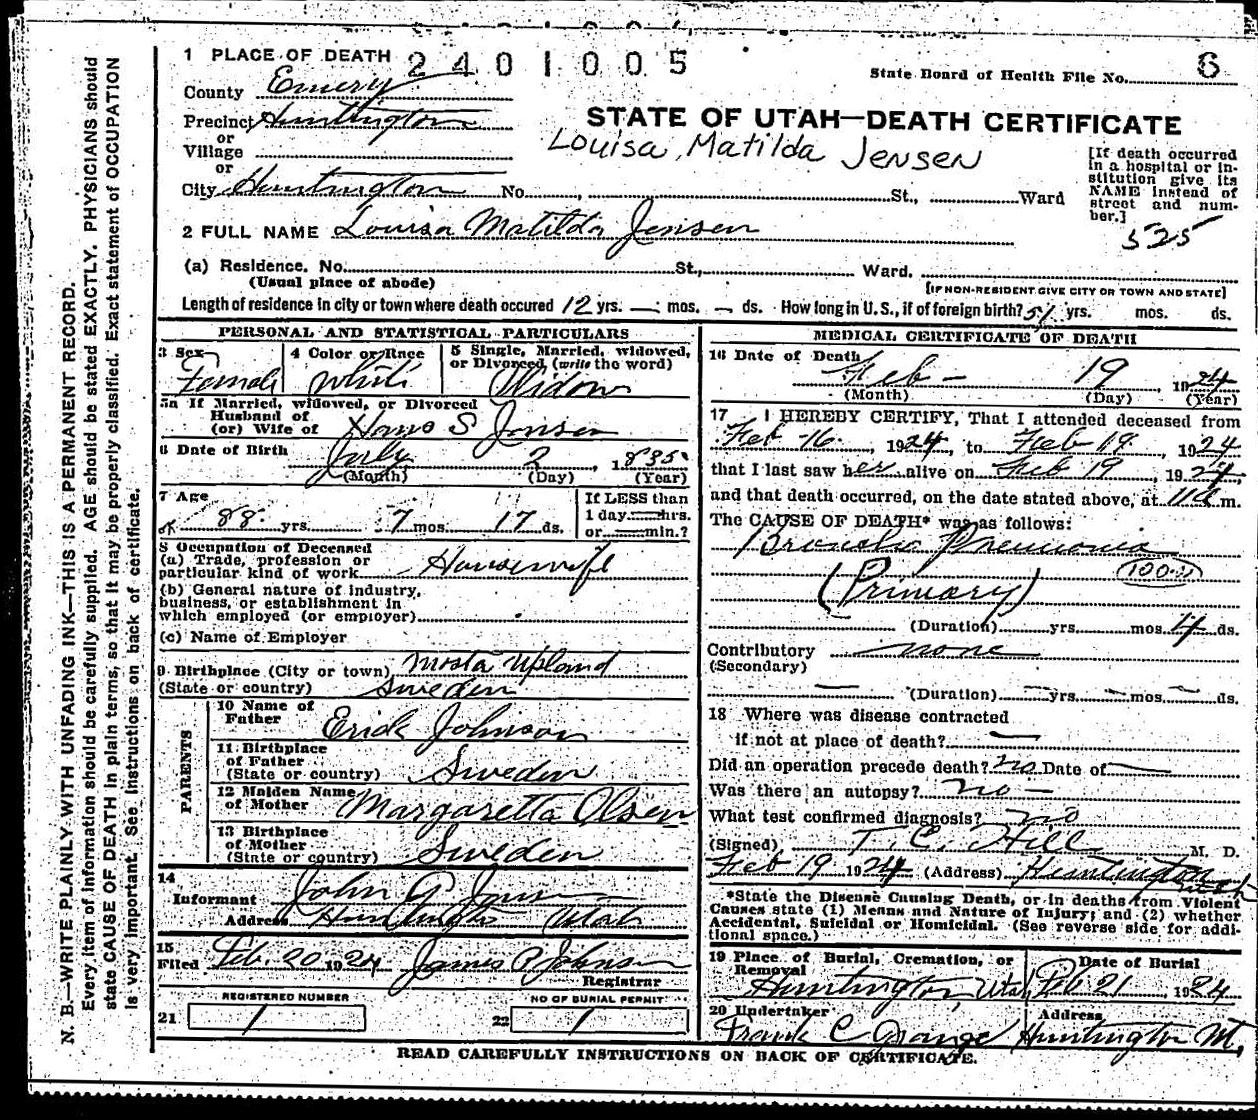 1 PLACE OF DEATH 2401005
State Board of Health File No. 6
County Emery
STATE OF UTAH—DEATH CERTIFICATE
Precinct Huntington
or
Village
or
Louisa Matilda Jensen
City Huntington No. , St., Ward
[If death occurred
in a hospital or in-
stitution give its
NAME instead of
street and num-
ber.]
525
2 FULL NAME Louisa Matilda Jensen
(a) Residence. No. St., Ward.
(Usual place of abode)
[IF NON-RESIDENT GIVE CITY OR TOWN AND STATE]
Length of residence in city or town where death occured 12 yrs. — mos. — ds. How long in U.S., if of foreign birth? 51 yrs. mos. ds.
PERSONAL AND STATISTICAL PARTICULARS
3 Sex
Female
4 Color or Race
White
5 Single, Married, widowed,
or Divorced, (write the word)
Widow
5a If Married, widowed, or Divorced
Husband of
(or) Wife of Hans S Jensen
6 Date of Birth July 2, 1835
(Month) (Day) (Year)
7 Age
88 yrs. 7 mos. 17 ds.
If LESS than
1 day — hrs.
or — min.?
8 Occupation of Deceased
(a) Trade, profession or
particular kind of work Housewife
(b) General nature of industry,
business, or establishment in
which employed (or employer)
(c) Name of Employer
9 Birthplace (City or town) Mosta Upland
(State or country) Sweden
PARENTS
10 Name of
Father Erick Johnson
11 Birthplace
of Father
(State or country) Sweden
12 Maiden Name
of Mother Margaretta Olsen
13 Birthplace
of Mother
(State or country) Sweden
14
Informant John A Jensen
Address Huntington Utah
15
Filed Feb. 20 1924 James P Johnson
Registrar
REGISTERED NUMBER
21 1
NO OF BURIAL PERMIT
22 1
MEDICAL CERTIFICATE OF DEATH
16 Date of Death
Feb — 19, 1924
(Month) (Day) (Year)
17 I HEREBY CERTIFY, That I attended deceased from
Feb 16, 1924, to Feb 19, 1924
that I last saw her alive on Feb 19, 1924,
and that death occurred, on the date stated above, at 11 a m.
The CAUSE OF DEATH* was as follows:
Broncho Pneumonia
(Primary)
(Duration) yrs. mos. 4 ds.
Contributory none
(Secondary)
— (Duration) — yrs. — mos. — ds.
18 Where was disease contracted
if not at place of death? —
Did an operation precede death? no Date of —
Was there an autopsy? no —
What test confirmed diagnosis? no
(Signed) T. C. Hill M. D.
Feb 19 1924 (Address) Huntington Utah
*State the Disease Causing Death, or in deaths from Violent
Causes state (1) Means and Nature of Injury; and (2) whether
Accidental, Suicidal or Homicidal. (See reverse side for addi-
tional space.)
19 Place of Burial, Cremation, or
Removal
Huntington, Utah
Date of Burial
Feb 21, 1924
20 Undertaker
Frank C Grange
Address
Huntington Ut,
READ CAREFULLY INSTRUCTIONS ON BACK OF CERTIFICATE.
N. B.—WRITE PLAINLY WITH UNFADING INK—THIS IS A PERMANENT RECORD.
Every item of information should be carefully supplied. AGE should be stated EXACTLY. PHYSICIANS should
state CAUSE OF DEATH in plain terms, so that it may be properly classified. Exact statement of OCCUPATION
is very important. See instructions on back of certificate.